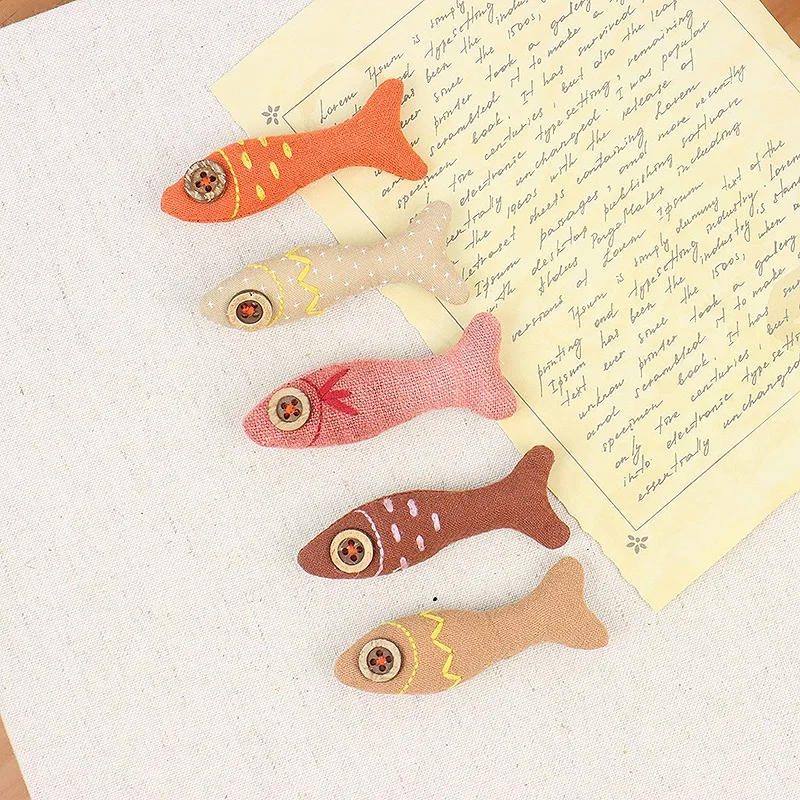 is simply
Lorem Ipsum
and typesetting industry. Lorem
has been the 1500s,
ever since the
printer took a galery
scrambled it to make a
specimen book. It has survived
five centuries, but also the leap
electronic typesetting, remaining
essentially unchanged. I was popular
the 1960s with the release of
Letraset sheets containing Lorem
passages, and more recently
with desktop publishing software
Aldus PageMaker including
versions of Lorem Ipsum
Ipsum is simply dummy text of the
printing and typesetting industry. Lorem
Ipsum has been the industry is stan
text ever since the 1500s, when
unknow printer took a galery
and scrambled it to make
specimen book. It has sur
only five centuries, but
into electronic typesett
essentrally unchanged